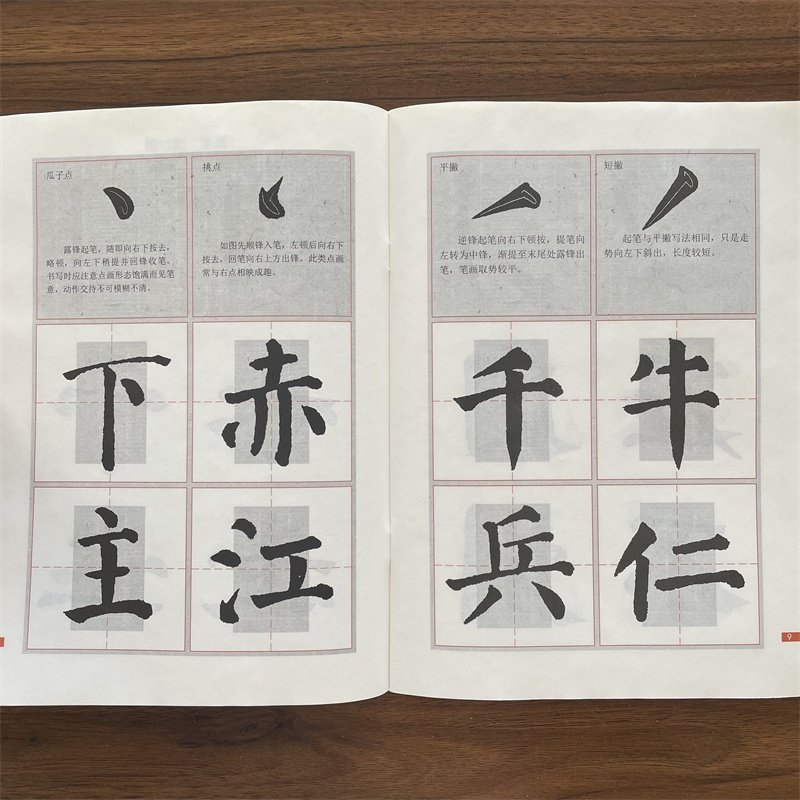 瓜子点
露锋起笔，随即向右下按去，
略顿，向左下稍提并回锋收笔。
书写时应注意点画形态饱满而见笔
意，动作交待不可模糊不清。
挑点
如图先顺锋入笔，左顿后向右下
按去，回笔向右上方出锋。此类点画
常与右点相映成趣。
下
赤
主
江
平撇
逆锋起笔向右下顿按，提笔向
左转为中锋，渐提至末尾处露锋出
笔，笔画取势较平。
短撇
起笔与平撇写法相同，只是走
势向左下斜出，长度较短。
千
牛
兵
仁
9